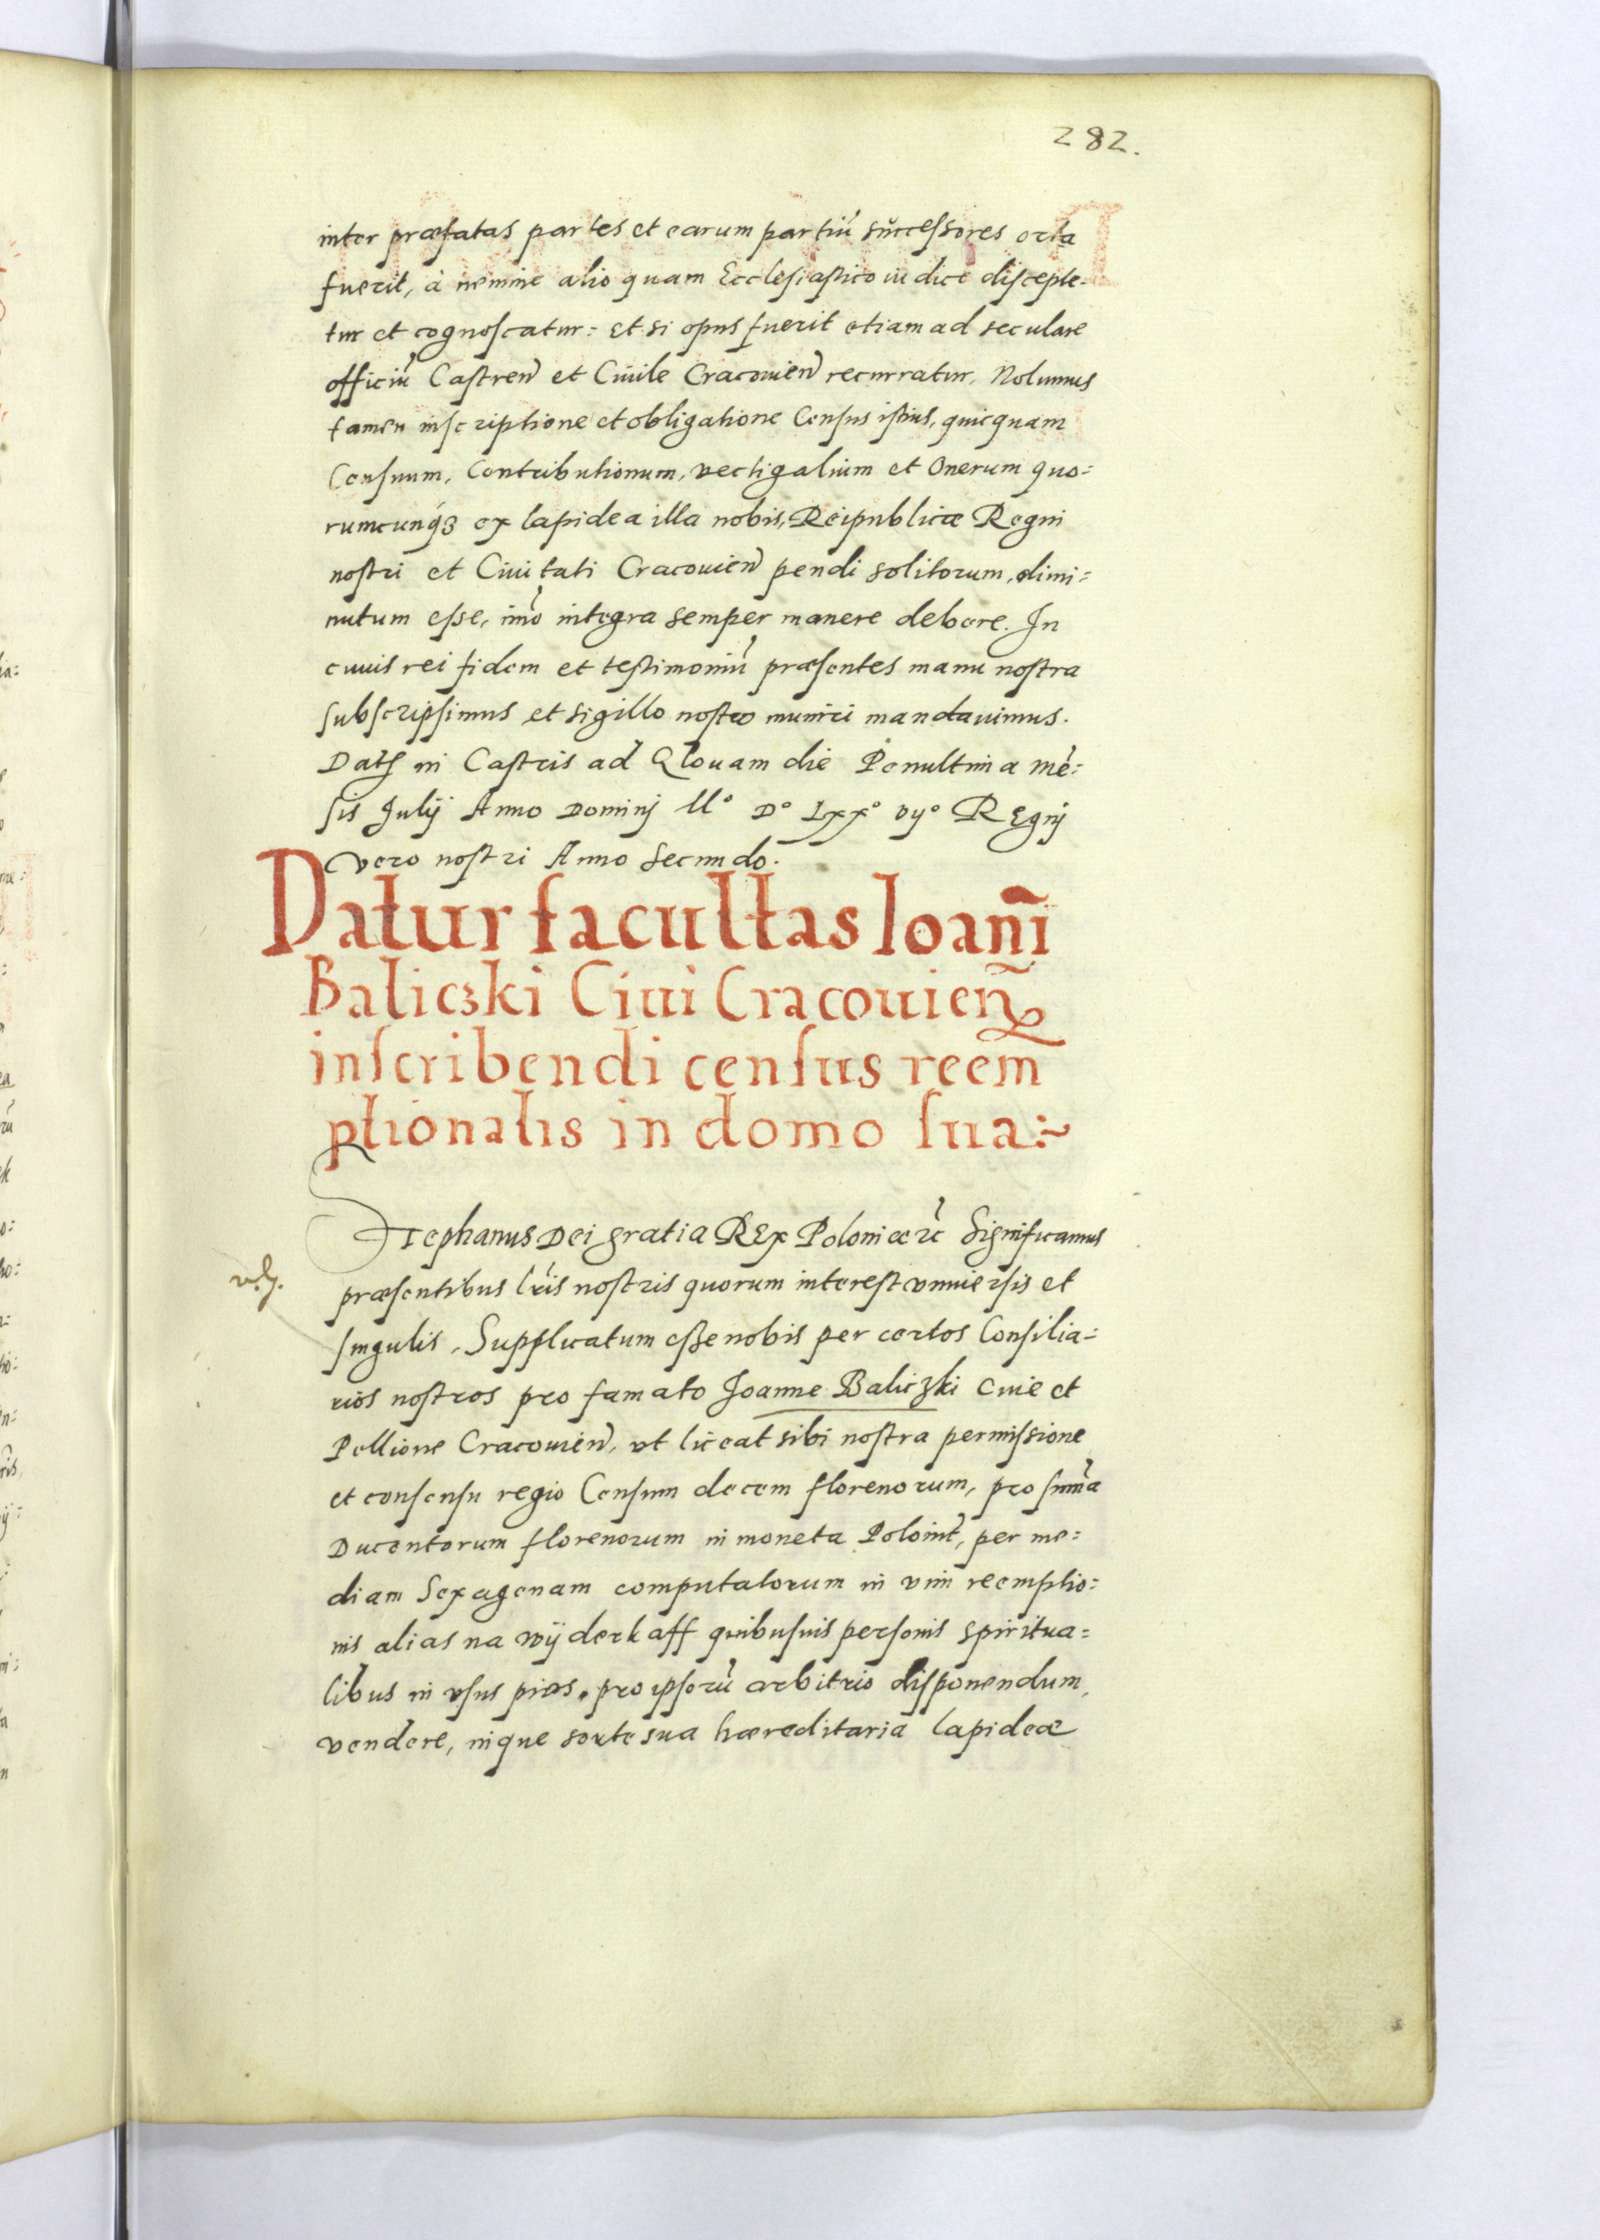 282.
inter præfatas partes et earum partiũ successores orta
fuerit, à nemine alio quam Ecclesiastico iudice discepte=
tur et cognoscatur: et si opus fuerit etiam ad seculare
officiũ Castreñ et Ciuile Cracouieñ recurratur. Nolumus
tamen inscriptione et obligatione Census istius, quicquam
Censuum, Contributionum, vectigalium et Onerum quo=
rumcunqȝ ex lapidea illa nobis, Reipublicæ Regni
nostri et Ciuitati Cracouieñ pendi solitorum, dimi=
nutum esse, imò integra semper manere debere. In
cuius rei fidem et testimoniũ præsentes manu nostra
subscripsimus et sigillo nostro muniri mandauimus.
Dat in Castris ad Qlouam die Penultima mẽ=
sis Julij Anno Dominj Mº Dº Lxxº vijº REgnj
vero nostri Anno Secundo.
Datur facultas Ioañi
Baliczki Ciui Cracouieñ
inscribendi census reem
ptionalis in domo sua:~
Stephanus Dei gratia REx Poloniæ ꝛc̃ Significamus
præsentibus lr̃is nostris quorum interest vniuersis et
singulis. Supplicatum esse nobis per certos Consilia=
rios nostros pro famato Joanne Baliczki Ciue et
Pellione Cracouieñ, vt liceat sibi nostra permissione
et consensu regio Censum decem florenorum, pro sum̃a
Ducentorum florenorum in moneta Polonit̃, per me=
diam Sexagenam computatorum in vim reemptio=
nis alias na wÿderkaff quibusuis personis spiritua=
libus in vsus pios, pro ipsorũ arbitrio disponendum,
vendere, inque sorte sua hæreditaria lapideæ